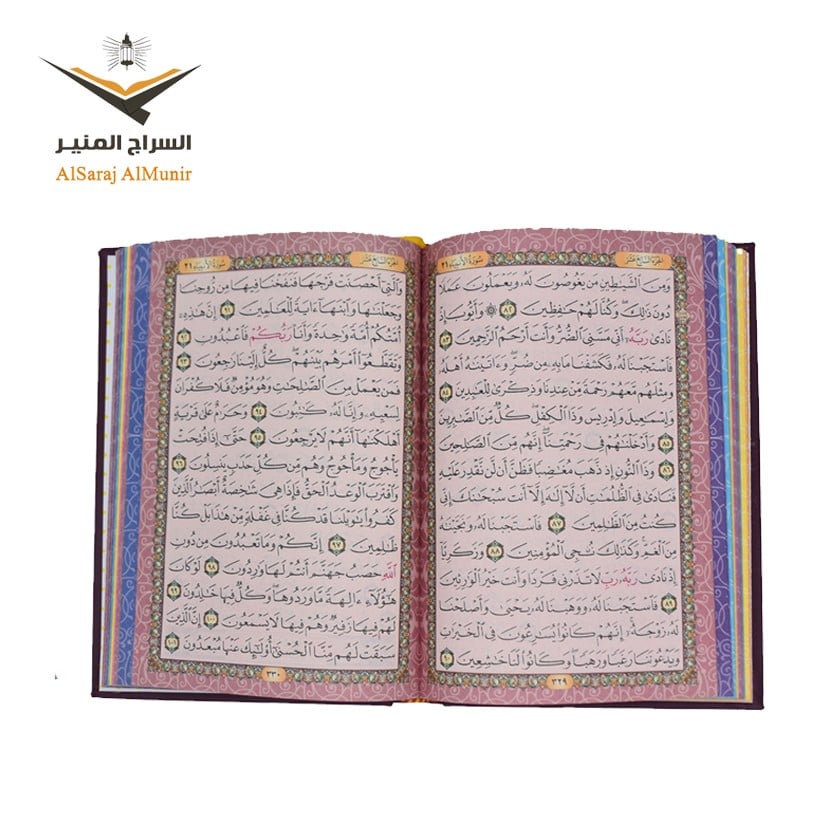 السراج المنير
AlSaraj AlMunir
الجزء السابع عشر
سورة الأنبياء ٢١
وَمِنَ الشَّيَاطِينِ مَن يَغُوصُونَ لَهُ وَيَعْمَلُونَ عَمَلًا
دُونَ ذَٰلِكَ وَكُنَّا لَهُمْ حَافِظِينَ ٨٢ ۞ وَأَيُّوبَ إِذْ
نَادَىٰ رَبَّهُ أَنِّي مَسَّنِيَ الضُّرُّ وَأَنتَ أَرْحَمُ الرَّاحِمِينَ ٨٣
فَاسْتَجَبْنَا لَهُ فَكَشَفْنَا مَا بِهِ مِن ضُرٍّ وَآتَيْنَاهُ أَهْلَهُ
وَمِثْلَهُم مَّعَهُمْ رَحْمَةً مِّنْ عِندِنَا وَذِكْرَىٰ لِلْعَابِدِينَ ٨٤
وَإِسْمَاعِيلَ وَإِدْرِيسَ وَذَا الْكِفْلِ كُلٌّ مِّنَ الصَّابِرِينَ
٨٥ وَأَدْخَلْنَاهُمْ فِي رَحْمَتِنَا إِنَّهُم مِّنَ الصَّالِحِينَ
٨٦ وَذَا النُّونِ إِذ ذَّهَبَ مُغَاضِبًا فَظَنَّ أَن لَّن نَّقْدِرَ عَلَيْهِ
فَنَادَىٰ فِي الظُّلُمَاتِ أَن لَّا إِلَٰهَ إِلَّا أَنتَ سُبْحَانَكَ إِنِّي
كُنتُ مِنَ الظَّالِمِينَ ٨٧ فَاسْتَجَبْنَا لَهُ وَنَجَّيْنَاهُ
مِنَ الْغَمِّ وَكَذَٰلِكَ نُنجِي الْمُؤْمِنِينَ ٨٨ وَزَكَرِيَّا
إِذْ نَادَىٰ رَبَّهُ رَبِّ لَا تَذَرْنِي فَرْدًا وَأَنتَ خَيْرُ الْوَارِثِينَ
٨٩ فَاسْتَجَبْنَا لَهُ وَوَهَبْنَا لَهُ يَحْيَىٰ وَأَصْلَحْنَا
لَهُ زَوْجَهُ إِنَّهُمْ كَانُوا يُسَارِعُونَ فِي الْخَيْرَاتِ
وَيَدْعُونَنَا رَغَبًا وَرَهَبًا وَكَانُوا لَنَا خَاشِعِينَ ٩٠
٣٢٩
الجزء السابع عشر
سورة الأنبياء ٢١
وَالَّتِي أَحْصَنَتْ فَرْجَهَا فَنَفَخْنَا فِيهَا مِن رُّوحِنَا
وَجَعَلْنَاهَا وَابْنَهَا آيَةً لِّلْعَالَمِينَ ٩١ إِنَّ هَٰذِهِ
أُمَّتُكُمْ أُمَّةً وَاحِدَةً وَأَنَا رَبُّكُمْ فَاعْبُدُونِ ٩٢
وَتَقَطَّعُوا أَمْرَهُم بَيْنَهُمْ كُلٌّ إِلَيْنَا رَاجِعُونَ ٩٣
فَمَن يَعْمَلْ مِنَ الصَّالِحَاتِ وَهُوَ مُؤْمِنٌ فَلَا كُفْرَانَ
لِسَعْيِهِ وَإِنَّا لَهُ كَاتِبُونَ ٩٤ وَحَرَامٌ عَلَىٰ قَرْيَةٍ
أَهْلَكْنَاهَا أَنَّهُمْ لَا يَرْجِعُونَ ٩٥ حَتَّىٰ إِذَا فُتِحَتْ
يَأْجُوجُ وَمَأْجُوجُ وَهُم مِّن كُلِّ حَدَبٍ يَنسِلُونَ ٩٦
وَاقْتَرَبَ الْوَعْدُ الْحَقُّ فَإِذَا هِيَ شَاخِصَةٌ أَبْصَارُ الَّذِينَ
كَفَرُوا يَا وَيْلَنَا قَدْ كُنَّا فِي غَفْلَةٍ مِّنْ هَٰذَا بَلْ كُنَّا
ظَالِمِينَ ٩٧ إِنَّكُمْ وَمَا تَعْبُدُونَ مِن دُونِ
اللَّهِ حَصَبُ جَهَنَّمَ أَنتُمْ لَهَا وَارِدُونَ ٩٨ لَوْ كَانَ
هَٰؤُلَاءِ آلِهَةً مَّا وَرَدُوهَا وَكُلٌّ فِيهَا خَالِدُونَ ٩٩
لَهُمْ فِيهَا زَفِيرٌ وَهُمْ فِيهَا لَا يَسْمَعُونَ ١٠٠ إِنَّ الَّذِينَ
سَبَقَتْ لَهُم مِّنَّا الْحُسْنَىٰ أُولَٰئِكَ عَنْهَا مُبْعَدُونَ ١٠١
٣٣٠